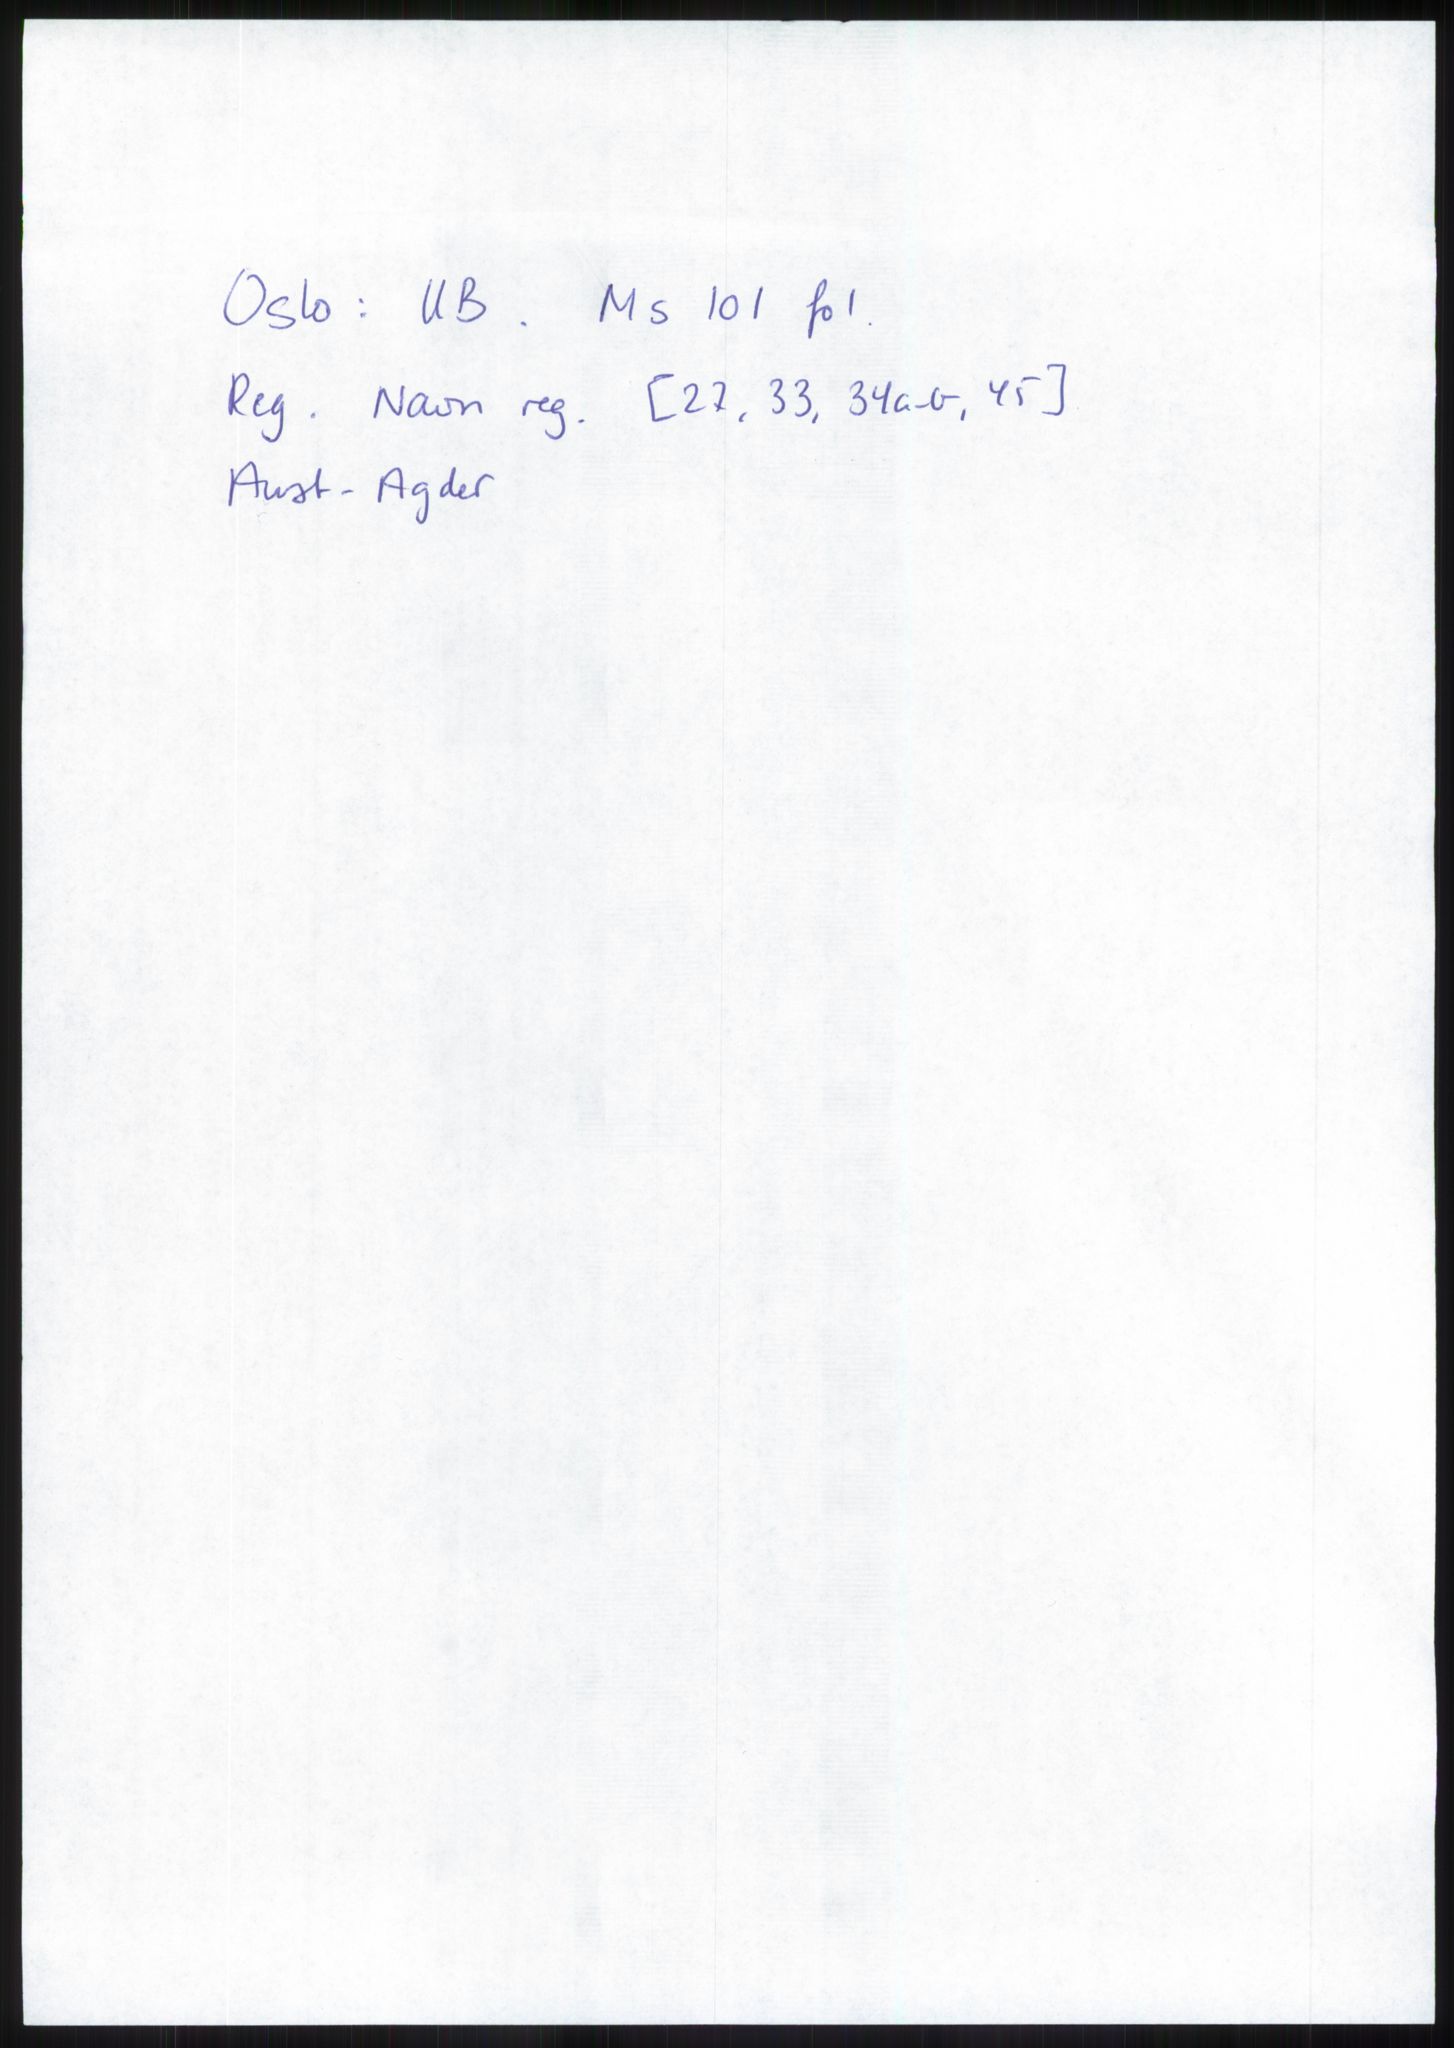 Oslo: UB. Ms 101 fol.
Reg. Navn reg. [27, 33, 34a-b, 45]
Aust-Agder